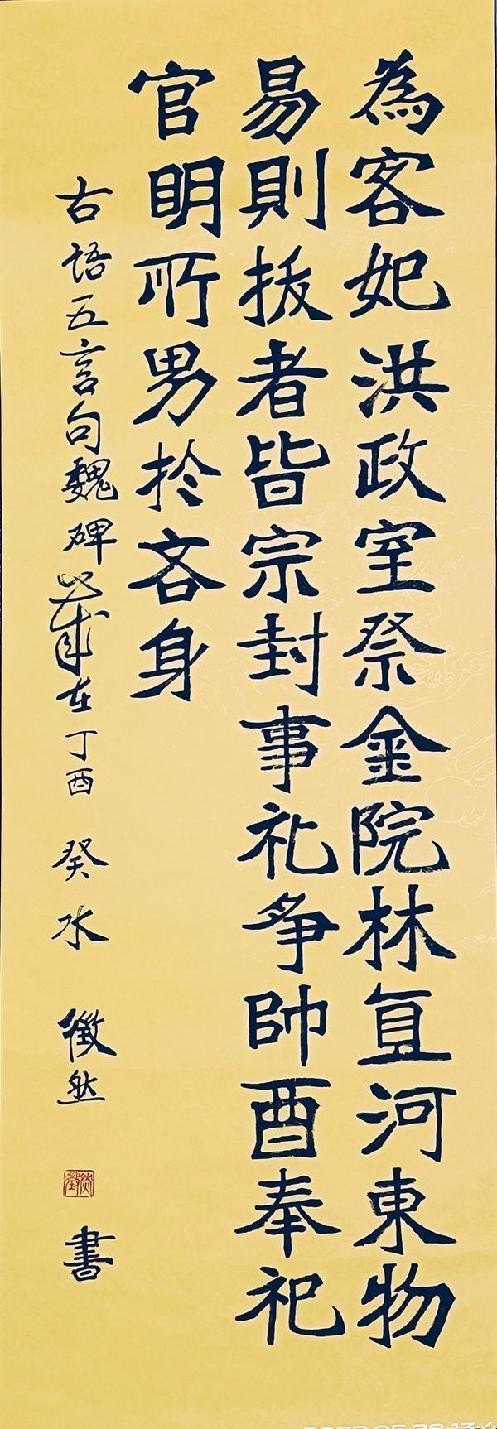 為客妃洪政室祭金院林直河東物
易則拔者皆宗封事礼爭帥酉奉祀
官明所男於吝身
古語五言句魏碑 在丁酉 癸水 徵然 書